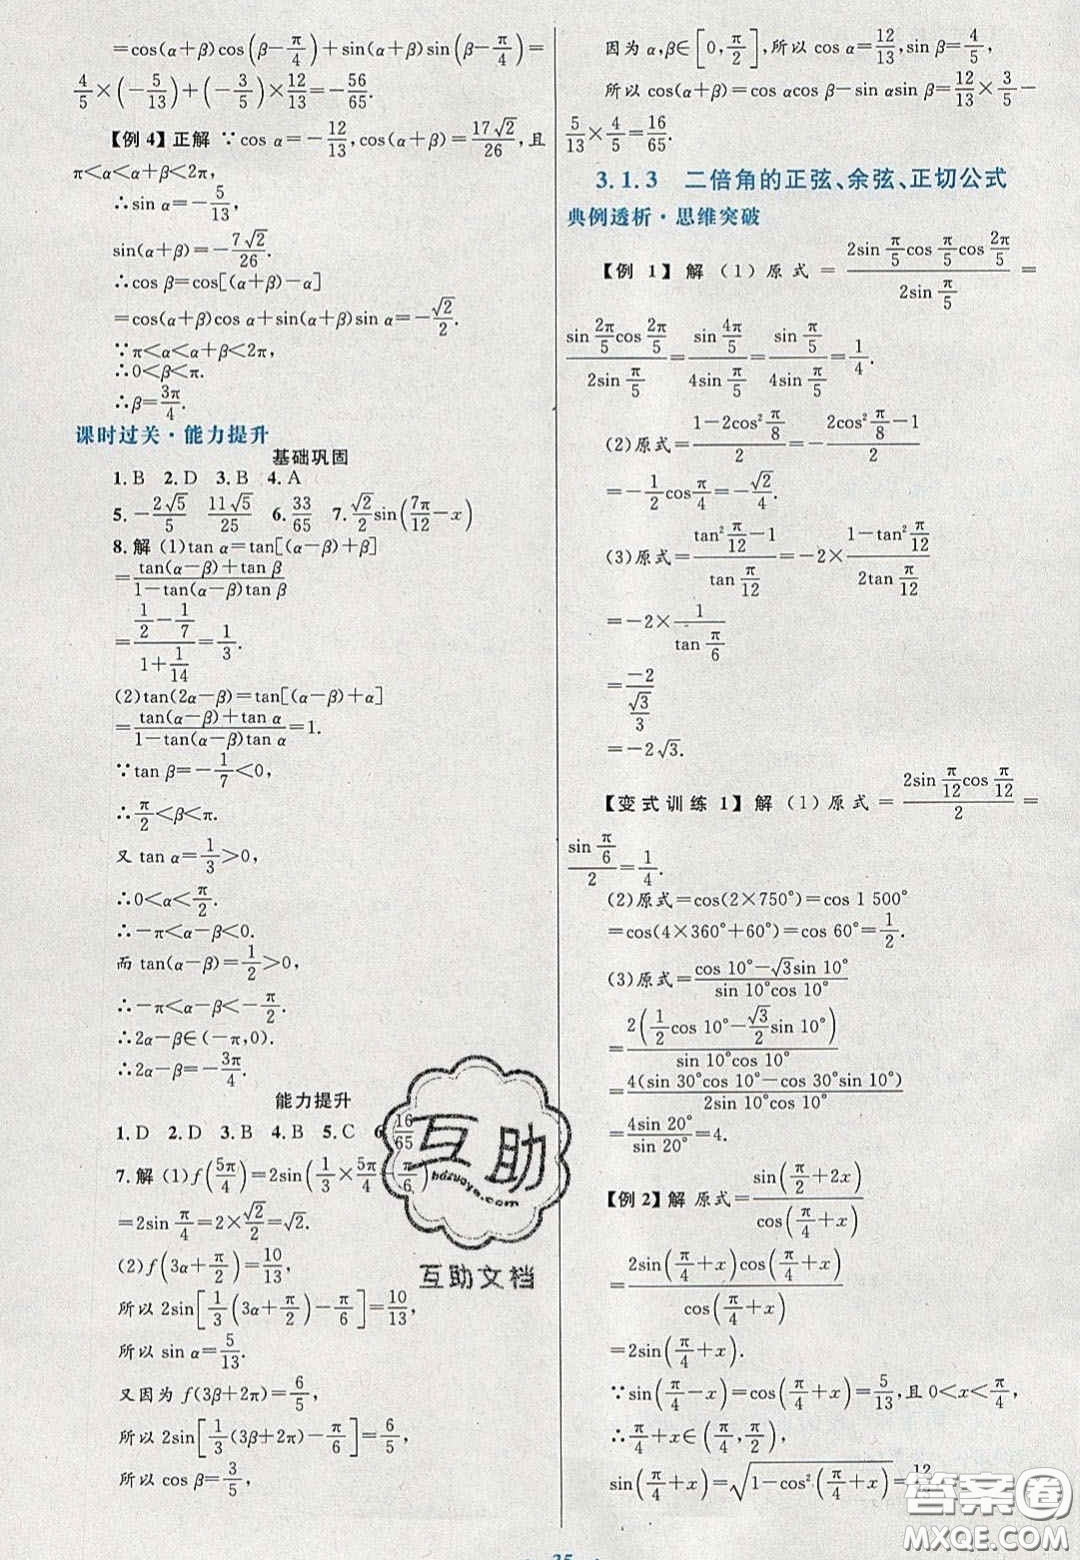 =cos(α+β)cos(β-π/4)+sin(α+β)sin(β-π/4)=
4/5×(-5/13)+(-3/5)×12/13=-56/65.
【例4】正解 ∵cos α=-12/13,cos(α+β)=17√2/26,且
π<α<α+β<2π,
∴sin α=-5/13,
sin(α+β)=-7√2/26.
∴cos β=cos[(α+β)-α]
=cos(α+β)cos α+sin(α+β)sin α=-√2/2.
∵π<α<α+β<2π,
∴0<β<π.
∴β=3π/4.
课时过关·能力提升
基础巩固
1.B 2.D 3.B 4.A
5.-2√5/5 11√5/25 6.33/65 7.√2/2 sin(7π/12-x)
8.解 (1)tan α=tan[(α-β)+β]
=(tan(α-β)+tan β)/(1-tan(α-β)tan β)
=(1/2-1/7)/(1+1/14)=1/3.
(2)tan(2α-β)=tan[(α-β)+α]
=(tan(α-β)+tan α)/(1-tan(α-β)tan α)=1.
∵tan β=-1/7<0,
∴π/2<β<π.
又 tan α=1/3>0,
∴0<α<π/2.
∴-π<α-β<0.
而 tan(α-β)=1/2>0,
∴-π<α-β<-π/2.
∴2α-β∈(-π,0).
∴2α-β=-3π/4.
能力提升
1.D 2.D 3.B 4.B 5.C 6.16/65
7.解 (1)f(5π/4)=2sin(1/3×5π/4-π/6)
=2sin π/4=2×√2/2=√2.
(2)f(3α+π/2)=10/13,
所以 2sin[1/3(3α+π/2)-π/6]=10/13,
所以 sin α=5/13.
又因为 f(3β+2π)=6/5,
所以 2sin[1/3(3β+2π)-π/6]=6/5,
所以 cos β=3/5,
因为 α,β∈[0,π/2],所以 cos α=12/13,sin β=4/5,
所以 cos(α+β)=cos αcos β-sin αsin β=12/13×3/5-
5/13×4/5=16/65.
3.1.3 二倍角的正弦、余弦、正切公式
典例透析·思维突破
【例 1】解 (1)原式=(2sin π/5 cos π/5 cos 2π/5)/(2sin π/5)=
(sin 2π/5 cos 2π/5)/(2sin π/5)=(sin 4π/5)/(4sin π/5)=(sin π/5)/(4sin π/5)=1/4.
(2)原式=(1-2cos² π/8)/2=-(2cos² π/8-1)/2
=-1/2 cos π/4=-√2/4.
(3)原式=(tan² π/12-1)/(tan π/12)=-2×(1-tan² π/12)/(2tan π/12)
=-2×1/(tan π/6)
=-2/(√3/3)
=-2√3.
【变式训练 1】解 (1)原式=(2sin π/12 cos π/12)/2=
(sin π/6)/2=1/4.
(2)原式=cos(2×750°)=cos 1 500°
=cos(4×360°+60°)=cos 60°=1/2.
(3)原式=(cos 10°-√3sin 10°)/(sin 10°cos 10°)
=2(1/2 cos 10°-√3/2 sin 10°)/(sin 10°cos 10°)
=4(sin 30°cos 10°-cos 30°sin 10°)/(2sin 10°cos 10°)
=4sin 20°/sin 20°=4.
【例 2】解 原式=sin(π/2+2x)/cos(π/4+x)
=2sin(π/4+x)cos(π/4+x)/cos(π/4+x)
=2sin(π/4+x).
∵sin(π/4-x)=cos(π/4+x)=5/13,且 0<x<π/4,
∴π/4+x∈(π/4,π/2),
sin(π/4+x)=√(1-cos²(π/4+x))=12/
互助
hdzuoye.com
互助文档
答案圈
MXQE.COM